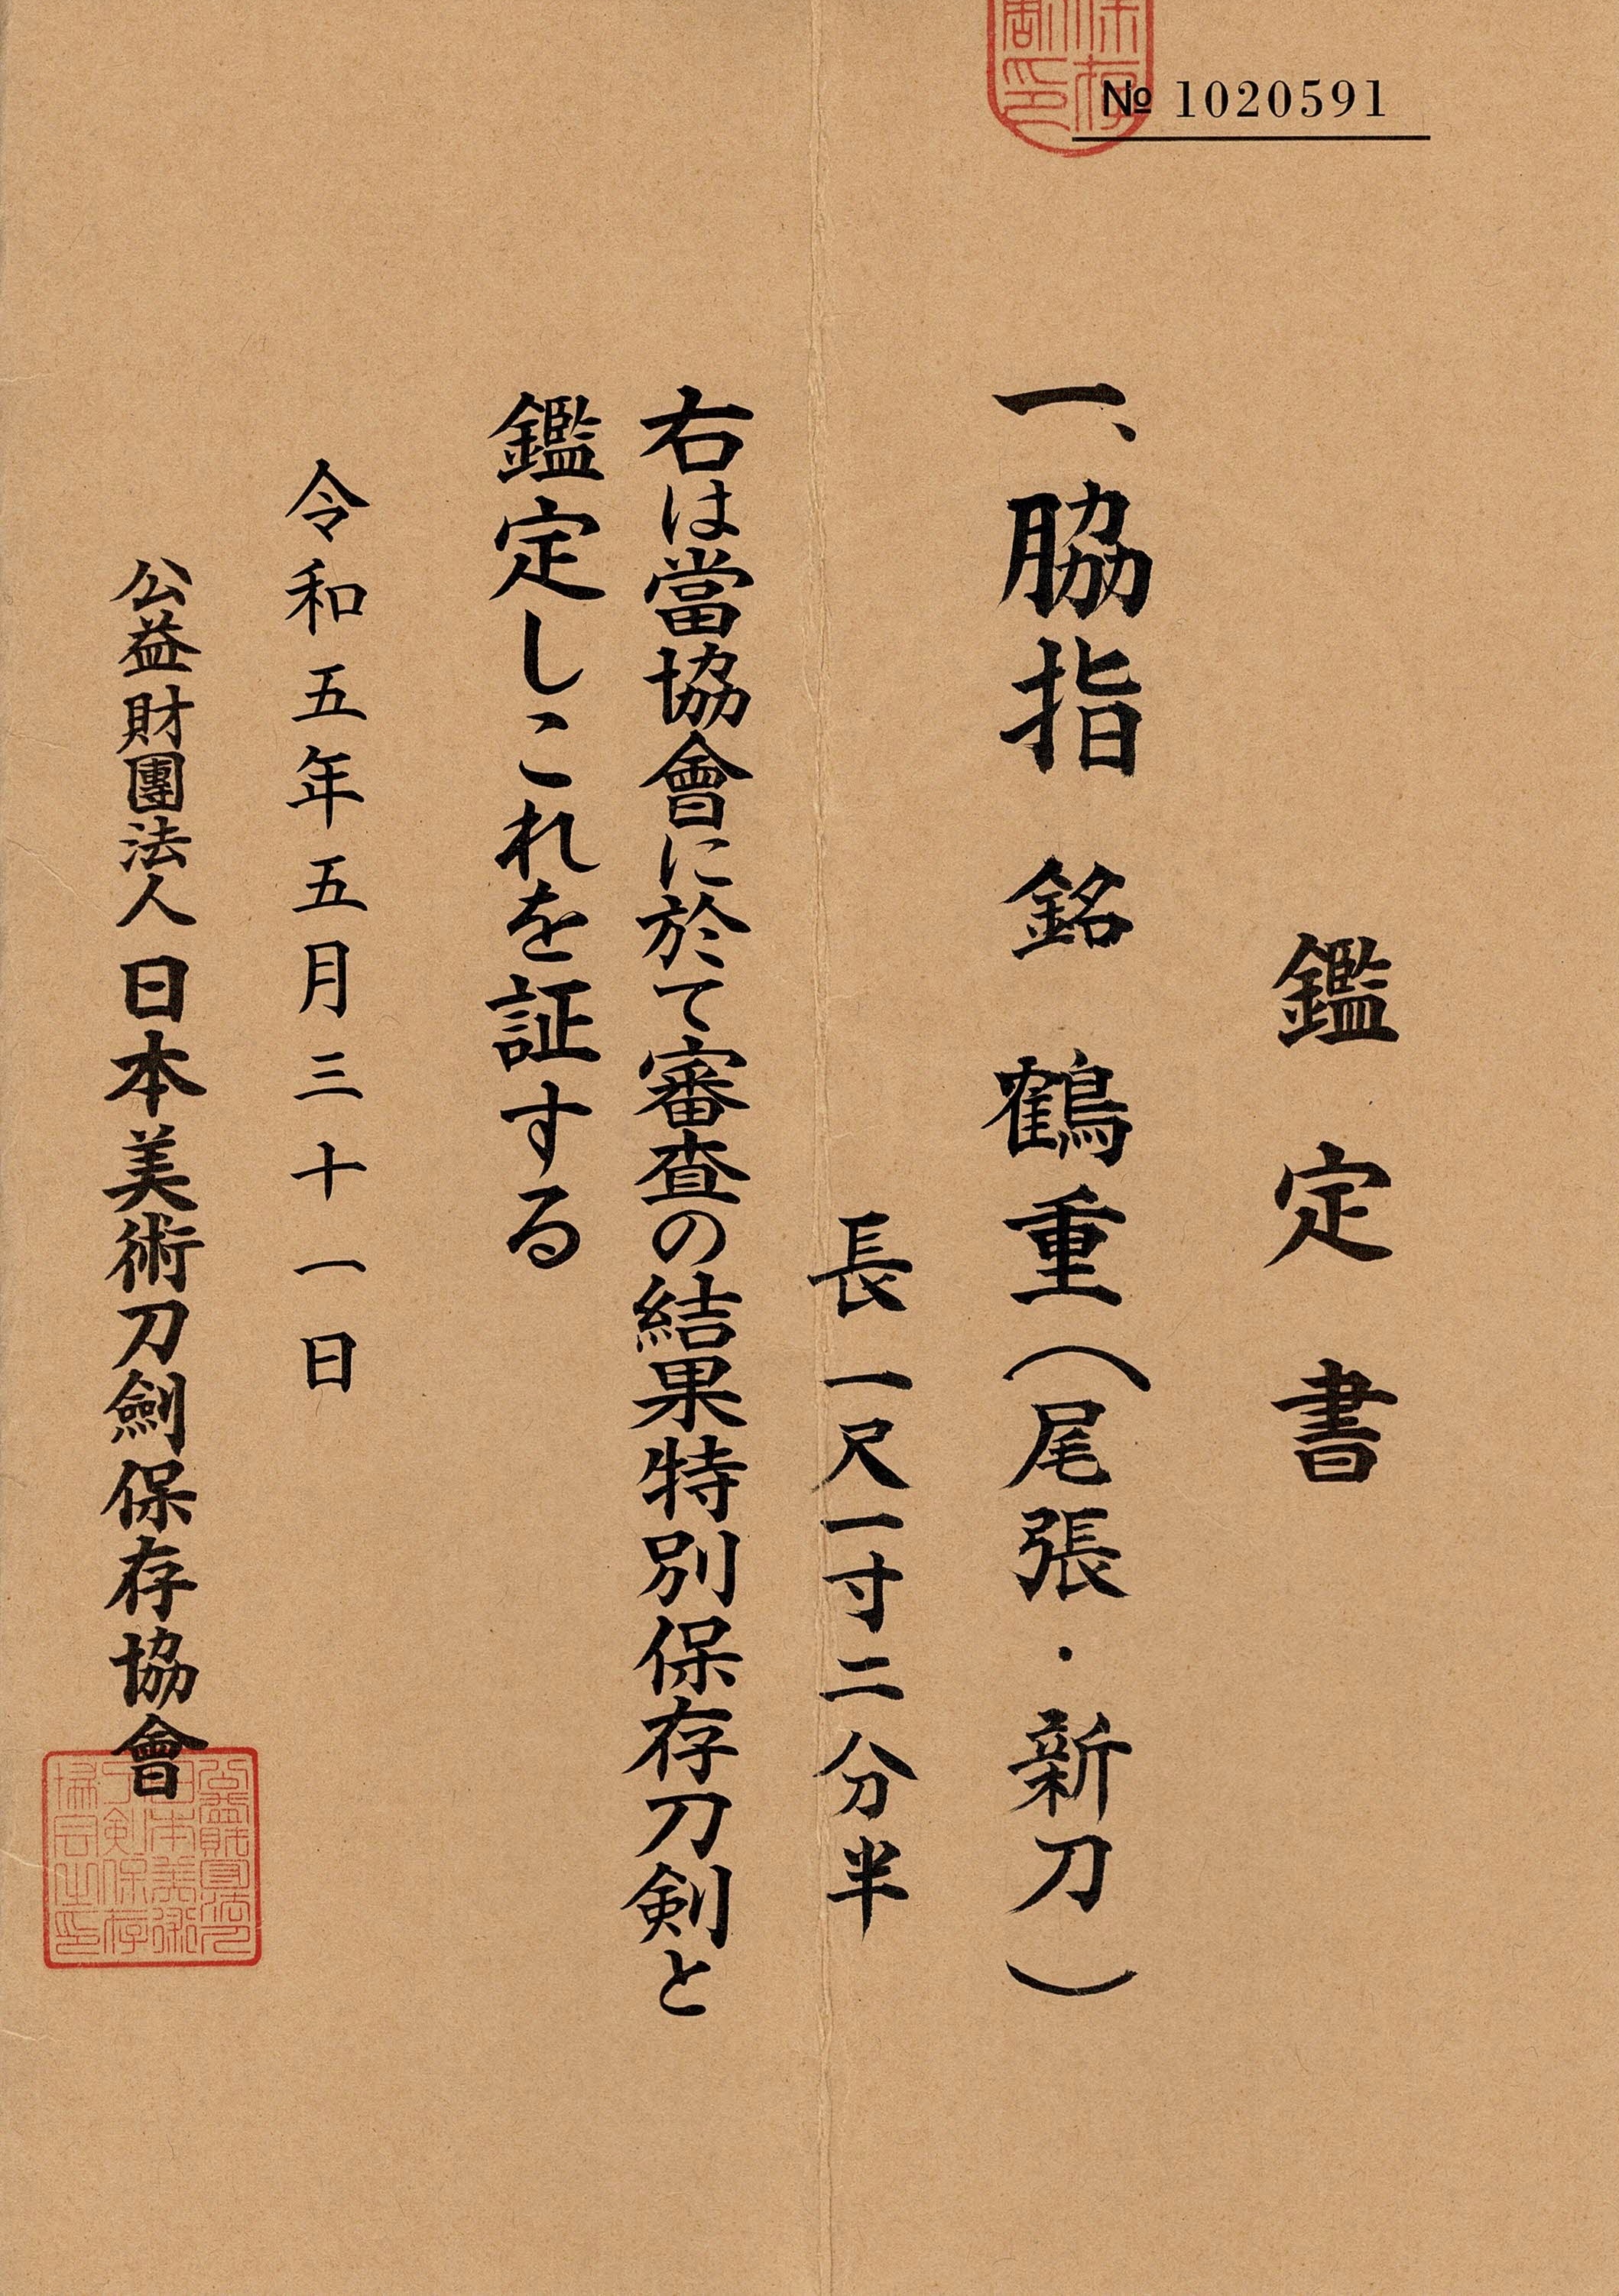 № 1020591
鑑定書
一、脇指 銘 鶴重(尾張・新刀)
長 一尺一寸二分半
右は當協會に於て審査の結果特別保存刀剣と
鑑定しこれを証する
令和五年五月三十一日
公益財團法人日本美術刀劍保存協會